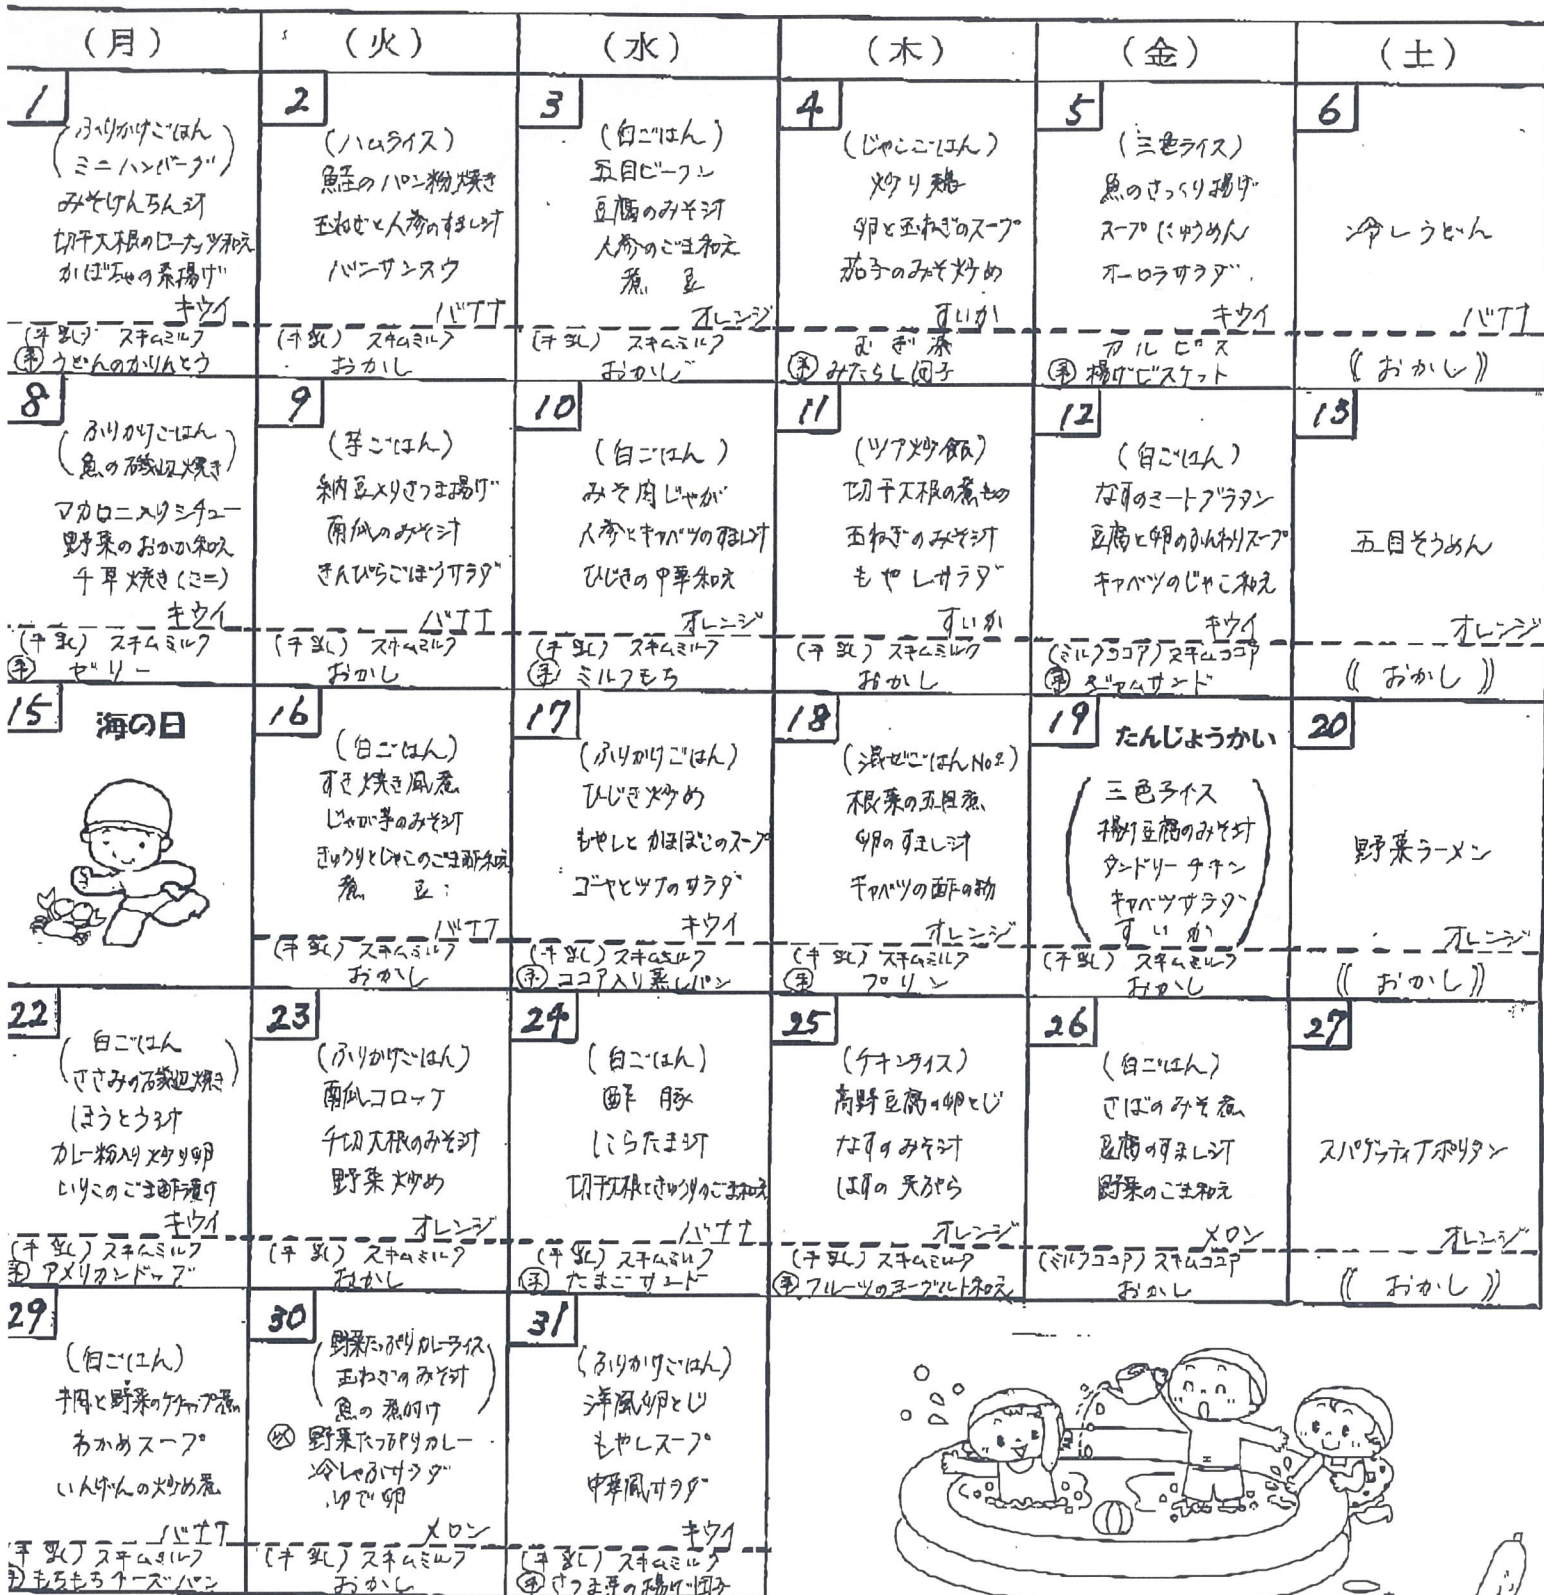 (月)
(火)
(水)
(木)
(金)
(土)
1
(ふりかけごはん
ミニハンバーグ)
みそけんちん汁
切干大根のピーナッツ和え
かぼちゃの素揚げ
キウイ
(牛乳) スキムミルク
手 うどんのかりんとう
2
(ハムライス)
鮭のパン粉焼き
玉ねぎと人参のすまし汁
バンサンスウ
バナナ
(牛乳) スキムミルク
おかし
3
(白ごはん)
五目ビーフン
豆腐のみそ汁
人参のごま和え
煮豆
オレンジ
(牛乳) スキムミルク
おかし
4
(じゃこごはん)
炒り鶏
卵と玉ねぎのスープ
茄子のみそ炒め
すいか
むぎ茶
手 みたらし団子
5
(三色ライス)
魚のさっくり揚げ
スープにゅうめん
オーロラサラダ
キウイ
カルピス
手 揚げビスケット
6
冷しうどん
バナナ
((おかし))
8
(ふりかけごはん
魚の磯辺焼き)
マカロニ入りシチュー
野菜のおかか和え
千草焼き(ミニ)
キウイ
(牛乳) スキムミルク
手 ゼリー
9
(芋ごはん)
納豆入りさつま揚げ
南瓜のみそ汁
きんぴらごぼうサラダ
バナナ
(牛乳) スキムミルク
おかし
10
(白ごはん)
みそ肉じゃが
人参とキャベツのすまし汁
ひじきの中華和え
オレンジ
(牛乳) スキムミルク
手 ミルクもち
11
(ツナ炒飯)
切干大根の煮もの
玉ねぎのみそ汁
もやしサラダ
すいか
(牛乳) スキムミルク
おかし
12
(白ごはん)
なすのミートグラタン
豆腐と卵のふんわりスープ
キャベツのじゃこ和え
キウイ
(ミルクココア) スキムココア
手 ジャムサンド
13
五目そうめん
オレンジ
((おかし))
15
海の日
16
(白ごはん)
すき焼き風煮
じゃが芋のみそ汁
きゅうりとじゃこのごま酢和え
煮豆
バナナ
(牛乳) スキムミルク
おかし
17
(ふりかけごはん)
ひじき炒め
もやしとかまぼこのスープ
ゴーヤとツナのサラダ
キウイ
(牛乳) スキムミルク
手 ココア入り蒸しパン
18
(混ぜごはんNo2)
根菜の五目煮
卵のすまし汁
キャベツの酢の物
オレンジ
(牛乳) スキムミルク
手 プリン
19
たんじょうかい
(三色ライス
揚げ豆腐のみそ汁
タンドリーチキン
キャベツサラダ
すいか)
(牛乳) スキムミルク
おかし
20
野菜ラーメン
オレンジ
((おかし))
22
(白ごはん
ささみの磯辺焼き)
ほうとう汁
カレー粉入り炒り卵
いりこのごま酢漬け
キウイ
(牛乳) スキムミルク
手 アメリカンドッグ
23
(ふりかけごはん)
南瓜コロッケ
千切大根のみそ汁
野菜炒め
オレンジ
(牛乳) スキムミルク
おかし
24
(白ごはん)
酢豚
にらたま汁
切干大根ときゅうりのごま和え
バナナ
(牛乳) スキムミルク
手 たまごサンド
25
(チキンライス)
高野豆腐の卵とじ
なすのみそ汁
はすの天ぷら
オレンジ
(牛乳) スキムミルク
手 フルーツのヨーグルト和え
26
(白ごはん)
さばのみそ煮
豆腐のすまし汁
野菜のごま和え
メロン
(ミルクココア) スキムココア
おかし
27
スパゲッティナポリタン
オレンジ
((おかし))
29
(白ごはん)
牛肉と野菜のケチャップ煮
わかめスープ
いんげんの炒め煮
バナナ
(牛乳) スキムミルク
手 もちもちチーズパン
30
(野菜たっぷりカレーライス
玉ねぎのみそ汁
魚の煮付け)
野菜たっぷりカレー
冷しゃぶサラダ
ゆで卵
メロン
(牛乳) スキムミルク
おかし
31
(ふりかけごはん)
洋風卵とじ
もやしスープ
中華風サラダ
キウイ
(牛乳) スキムミルク
手 さつま芋の揚げ団子